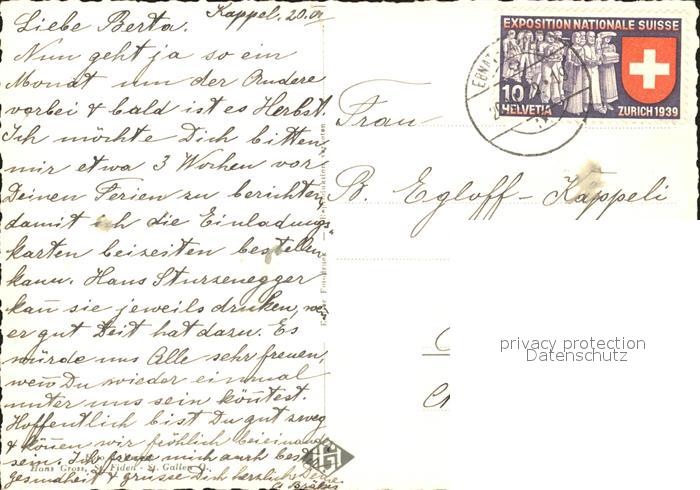 Kappel, 20.
Liebe Berta.
Nun geht ja so ein
Monat um der Andere
vorbei & bald ist es Herbst.
Ich möchte Dich bitten,
mir etwa 3 Wochen vor
Deinen Ferien zu berichten,
damit ich die Einladungs-
karten beizeiten bestellen
kann. Hans Sturzenegger
kan̄ sie jeweils druken, wen̄
er gut Zeit hat dazu. Es
würde uns Alle sehr freuen,
wen̄ Du wieder einmal
unter uns sein kön̄test.
Hoffentlich bist Du gut zweg
& kön̄en wir fröhlich beieinand
sein. Ich freue mich auch best
gesundheit & grüsse Dich herzlich Deine
Hans Gross, St. Fiden - St. Gallen O.
EXPOSITION NATIONALE SUISSE
10
HELVETIA
ZURICH 1939
EBNAT
Frau
B. Egloff-Käppeli
privacy protection
Datenschutz